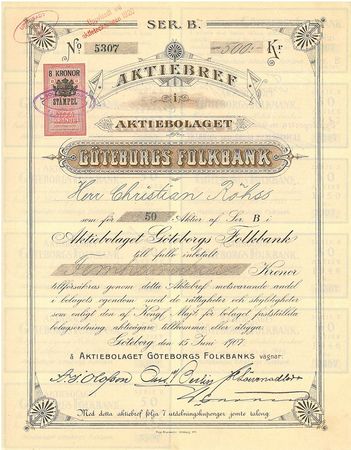 SER. B.
No 5307 500 Kr
8 KRONOR
STÄMPEL
AKTIEBREF
i
AKTIEBOLAGET
GÖTEBORGS FOLKBANK
Herr Christian Röhss
som för 50 Aktier af Ser. B i
Aktiebolaget Göteborgs Folkbank
till fullo inbetalt
Femhundra Kronor
tillförsäkras genom detta Aktiebref motsvarande andel
i bolagets egendom med de rättigheter och skyldigheter
som enligt den af Kongl. Maj:t för bolaget fastställda
bolagsordning, aktieägare tillkomma eller åligga.
Göteborg den 15 Juni 1907.
å AKTIEBOLAGET GÖTEBORGS FOLKBANKS vägnar:
Med detta aktiebref följa 7 utdelningskuponger jemte talong.